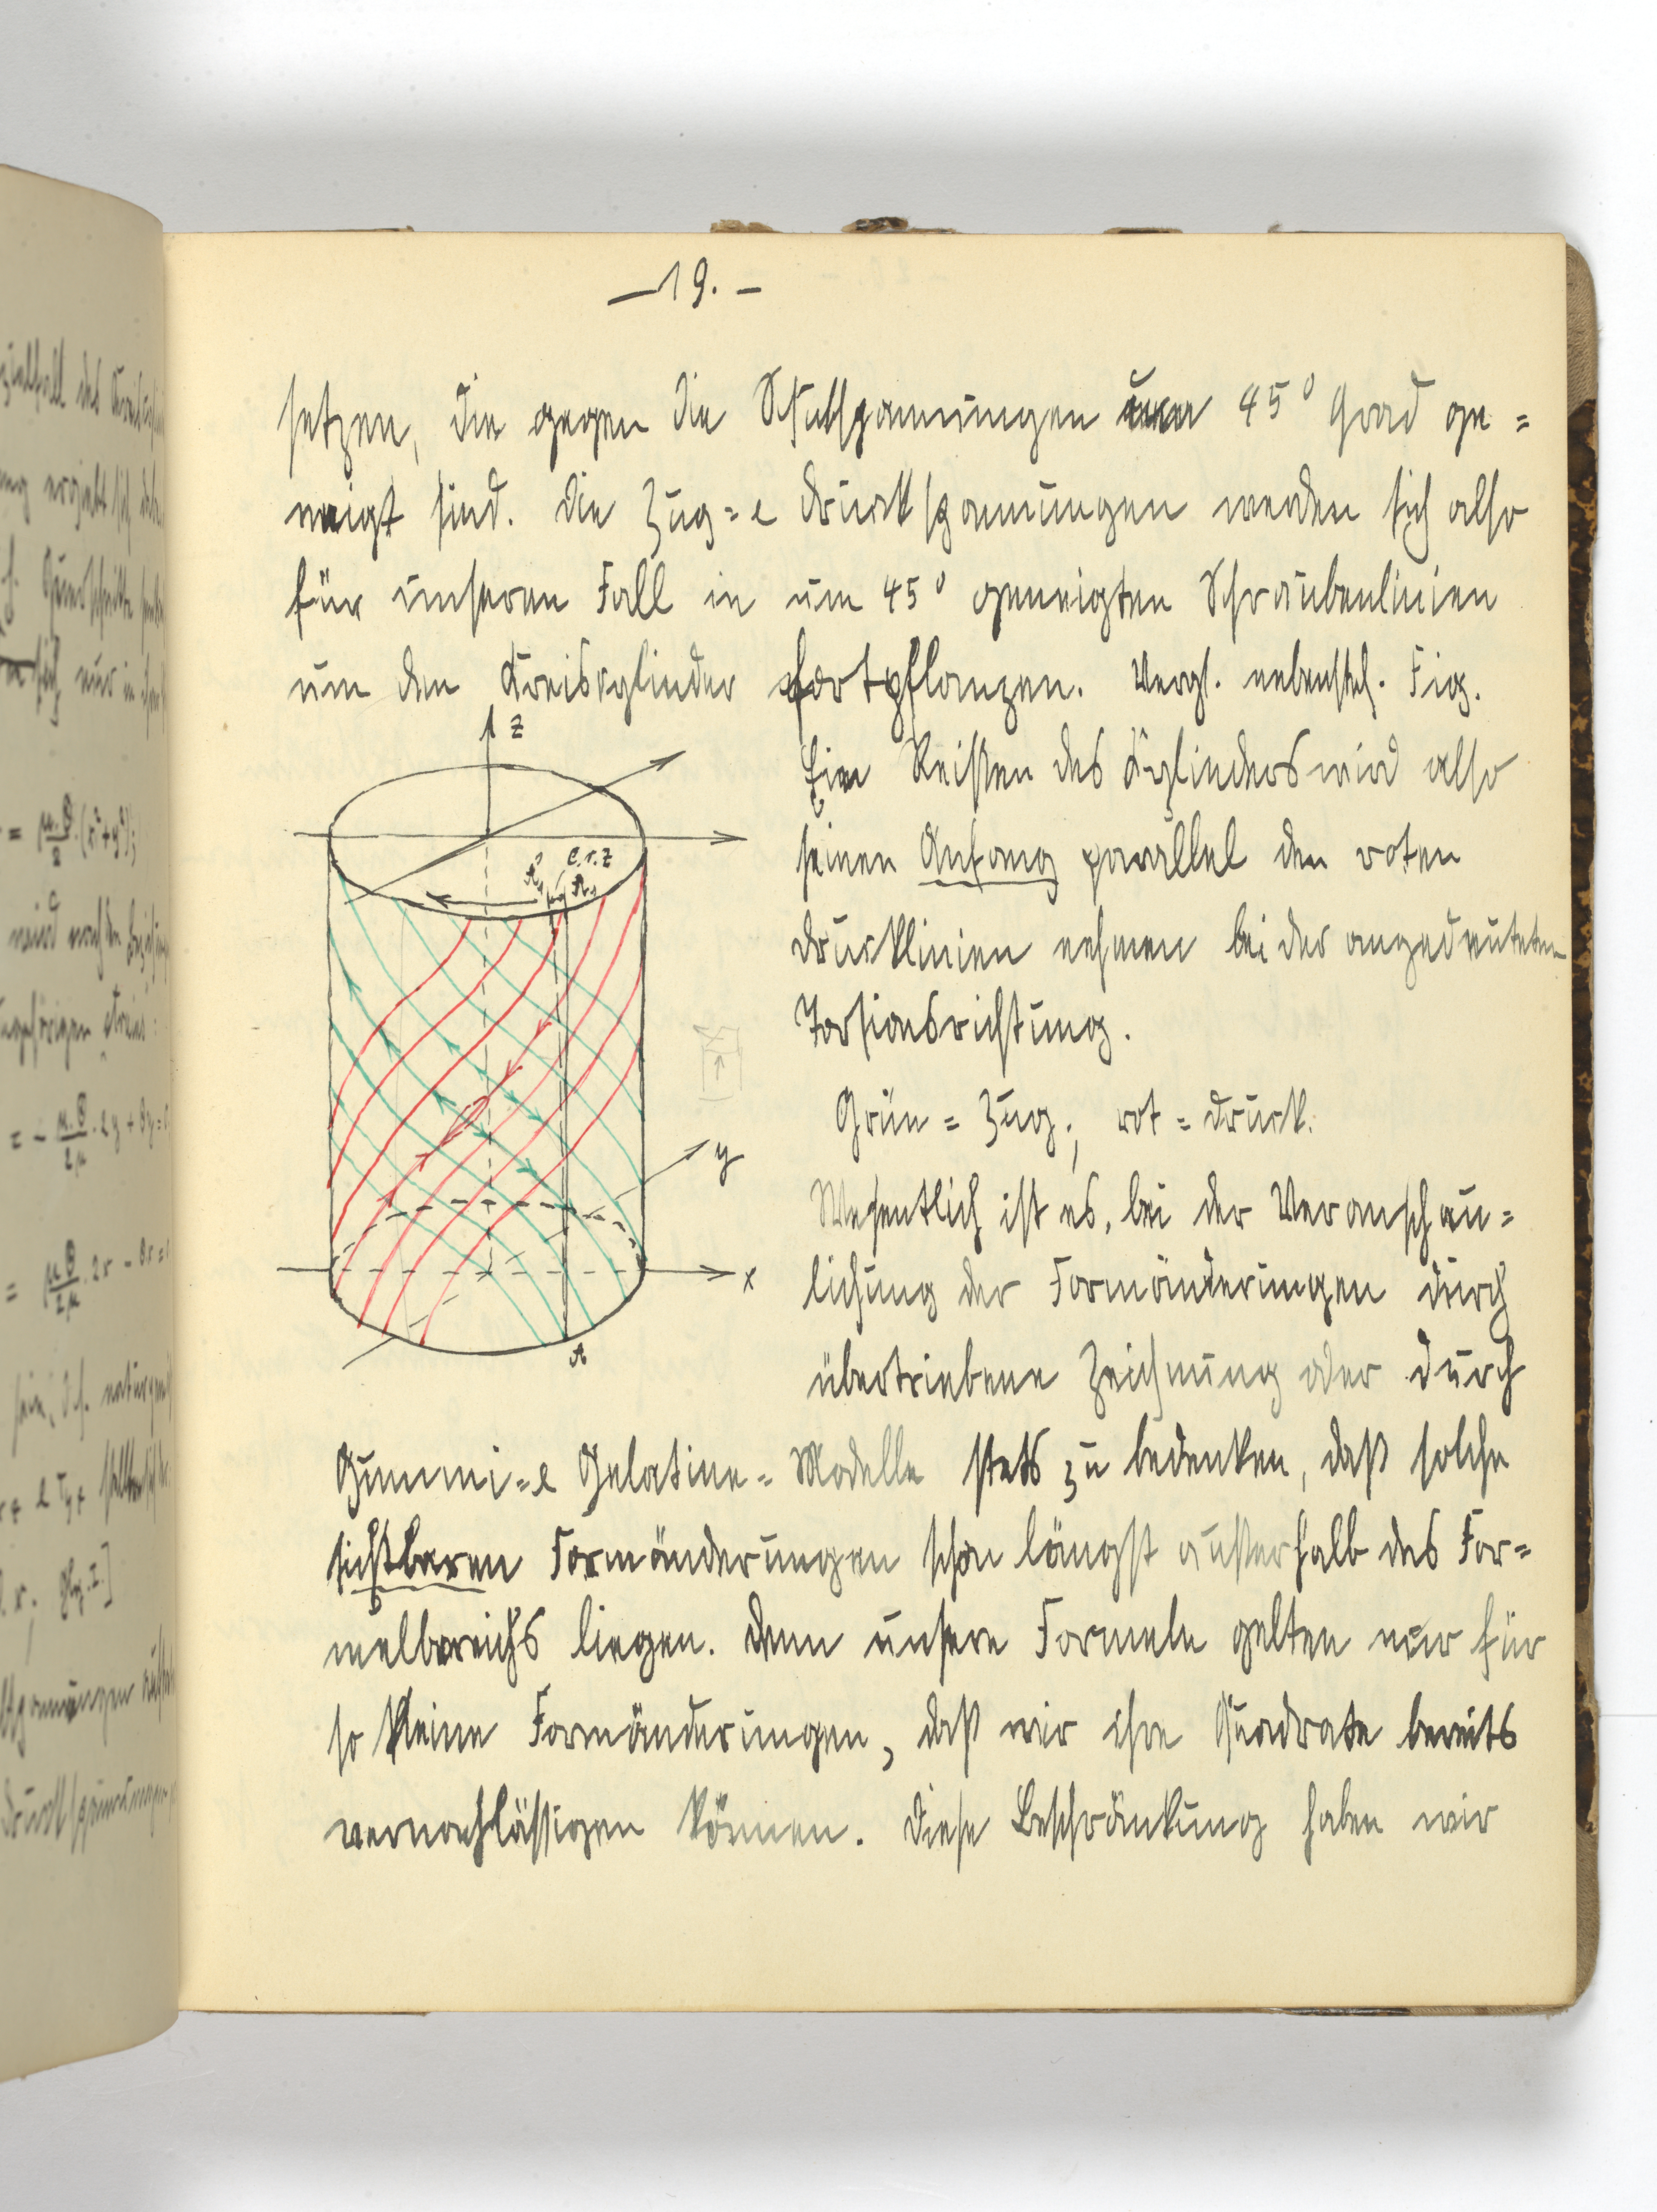 —19.—
setzen, die gegen die Schubspannungen um 45° Grad ge=
neigt sind. Die Zug= & Druckspannungen werden sich also
für unseren Fall in um 45° geneigten Schraubenlinien
um den Kreiszylinder fortpflanzen. Vergl. nebensteh. Fig.
z
Ein Reißen des Zylinders wird also
seinen Anfang parallel den roten
Drucklinien nehmen bei der angedeuteten
Torsionsrichtung.
Grün = Zug; rot = Druck.
y
Wesentlich ist es, bei der Veranschau=
x
lichung der Formänderungen durch
A
übertriebene Zeichnung oder durch
Gummi= & Gelatine=Modelle stets zu bedenken, daß solche
sichtbaren Formänderungen schon längst außerhalb des For=
melbereichs liegen. Denn unsere Formeln gelten nur für
so kleine Formänderungen, daß wir ihre Quadrate bereits
vernachlässigen können. Diese Beschränkung haben wir